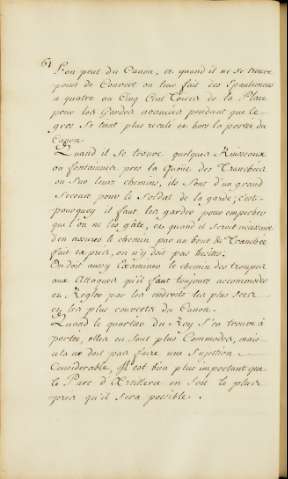 61
l'on peut du Canon, et quand il ne se trouve
point de Couvert on leur fait des Epaulemens
a quatre ou Cinq Cent Toises de la Place
pour les Gardes avancées pendant que le
gros Se tient plus reculé en hors la portée du
Canon
Quand il se trouve quelques Ruisseaux
ou fontaines prez la Queüe des Tranchées
ou Sur leurs chemins, ils Sont d'un grand
Secours pour le Soldat de la garde; C'est
pourquoy il faut les garder pour empescher
que l'on ne les gâte, et quand il seroit necessaire
d'en assurer le chemin par un bout de Tranchée
fait exprez, on n'y doit pas hesiter.
On doit aussy Examiner le chemin des troupes
aux Attaques qu'il faut toujours accommoder
en Regler par les endroits les plus secs
et les plus couverts du Canon.
Quand le quartier du Roy S'en trouve à
portée, elles en Sont plus Commodes, mais
cela ne doit pas faire une Sujettion
Considerable, Il est bien plus important que
le Parc d'Artillerie en Soit le plus
prez qu'il Sera possible.